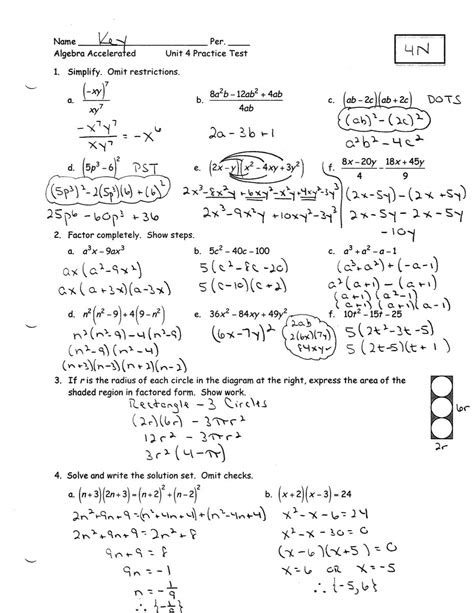 Name Key Per. ____
Algebra Accelerated Unit 4 Practice Test
4N
1. Simplify. Omit restrictions.
a. (-xy)^7 / xy^7
-x^7y^7 / xy^7 = -x^6
b. (8a²b - 12ab² + 4ab) / 4ab
2a - 3b + 1
c. (ab - 2c)(ab + 2c) DOTS
(ab)² - (2c)²
a²b² - 4c²
d. (5p³ - 6)² PST
(5p³)² - 2(5p³)(6) + (6)²
25p⁶ - 60p³ + 36
e. (2x - y)(x² - 4xy + 3y²)
2x³ - 8x²y + 6xy² - x²y + 4xy² - 3y³
2x³ - 9x²y + 10xy² - 3y³
f. (8x - 20y)/4 - (18x + 45y)/9
(2x - 5y) - (2x + 5y)
2x - 5y - 2x - 5y
-10y
2. Factor completely. Show steps.
a. a³x - 9ax³
ax(a² - 9x²)
ax(a + 3x)(a - 3x)
b. 5c² - 40c - 100
5(c² - 8c - 20)
5(c - 10)(c + 2)
c. a³ + a² - a - 1
(a³ + a²) + (-a - 1)
a²(a + 1) - (a + 1)
(a + 1)(a² - 1)
(a + 1)(a + 1)(a - 1)
d. n²(n² - 9) + 4(9 - n²)
n²(n² - 9) - 4(n² - 9)
(n² - 9)(n² - 4)
(n + 3)(n - 3)(n + 2)(n - 2)
e. 36x² - 84xy + 49y²
(6x - 7y)²
2ab
2(6x)(7y)
84xy
f. 10t² - 15t - 25
5(2t² - 3t - 5)
5(2t - 5)(t + 1)
3. If r is the radius of each circle in the diagram at the right, express the area of the
shaded region in factored form. Show work.
Rectangle - 3 Circles
(2r)(6r) - 3πr²
12r² - 3πr²
3r²(4 - π)
6r
2r
4. Solve and write the solution set. Omit checks.
a. (n + 3)(2n + 3) = (n + 2)² + (n - 2)²
2n² + 9n + 9 = (n² + 4n + 4) + (n² - 4n + 4)
2n² + 9n + 9 = 2n² + 8
9n + 9 = 8
9n = -1
n = -1/9
∴ {-1/9}
b. (x + 2)(x - 3) = 24
x² - x - 6 = 24
x² - x - 30 = 0
(x - 6)(x + 5) = 0
x = 6 OR x = -5
∴ {-5, 6}